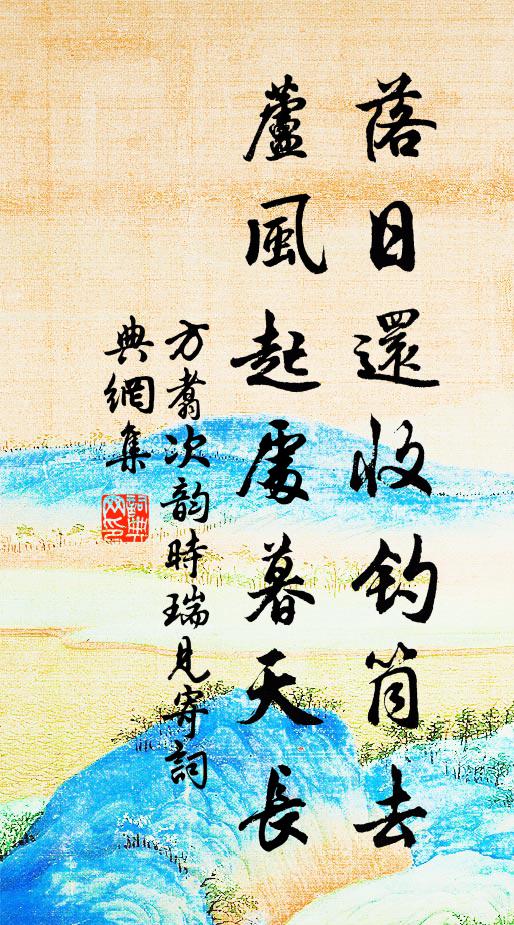 落日還收釣筒去
蘆風起處暮天長
方翥次韵時瑞見寄詞
典網集